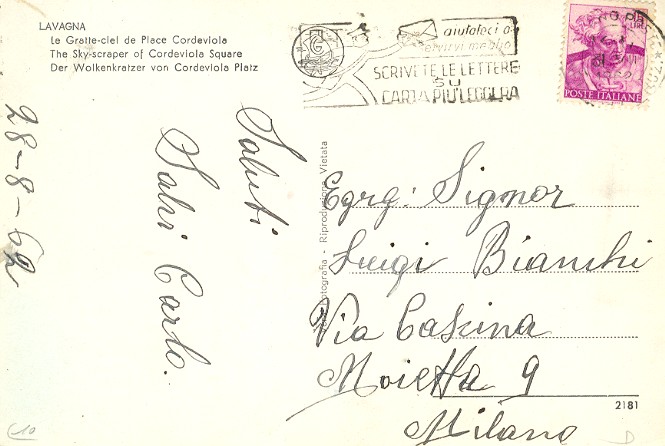 LAVAGNA
Le Gratte-ciel de Place Cordeviola
The Sky-scraper of Cordeviola Square
Der Wolkenkratzer von Cordeviola Platz
aiutateci a
servirvi meglio
SCRIVETE LE LETTERE
SU
CARTA PIÙ LEGGERA
POSTE ITALIANE
28-8-62
Saluti
Salvi Carlo.
fotografia - Riproduzione Vietata
Egrg: Signor
Luigi Bianchi
Via Casina
Moietta 9
Milano
2181